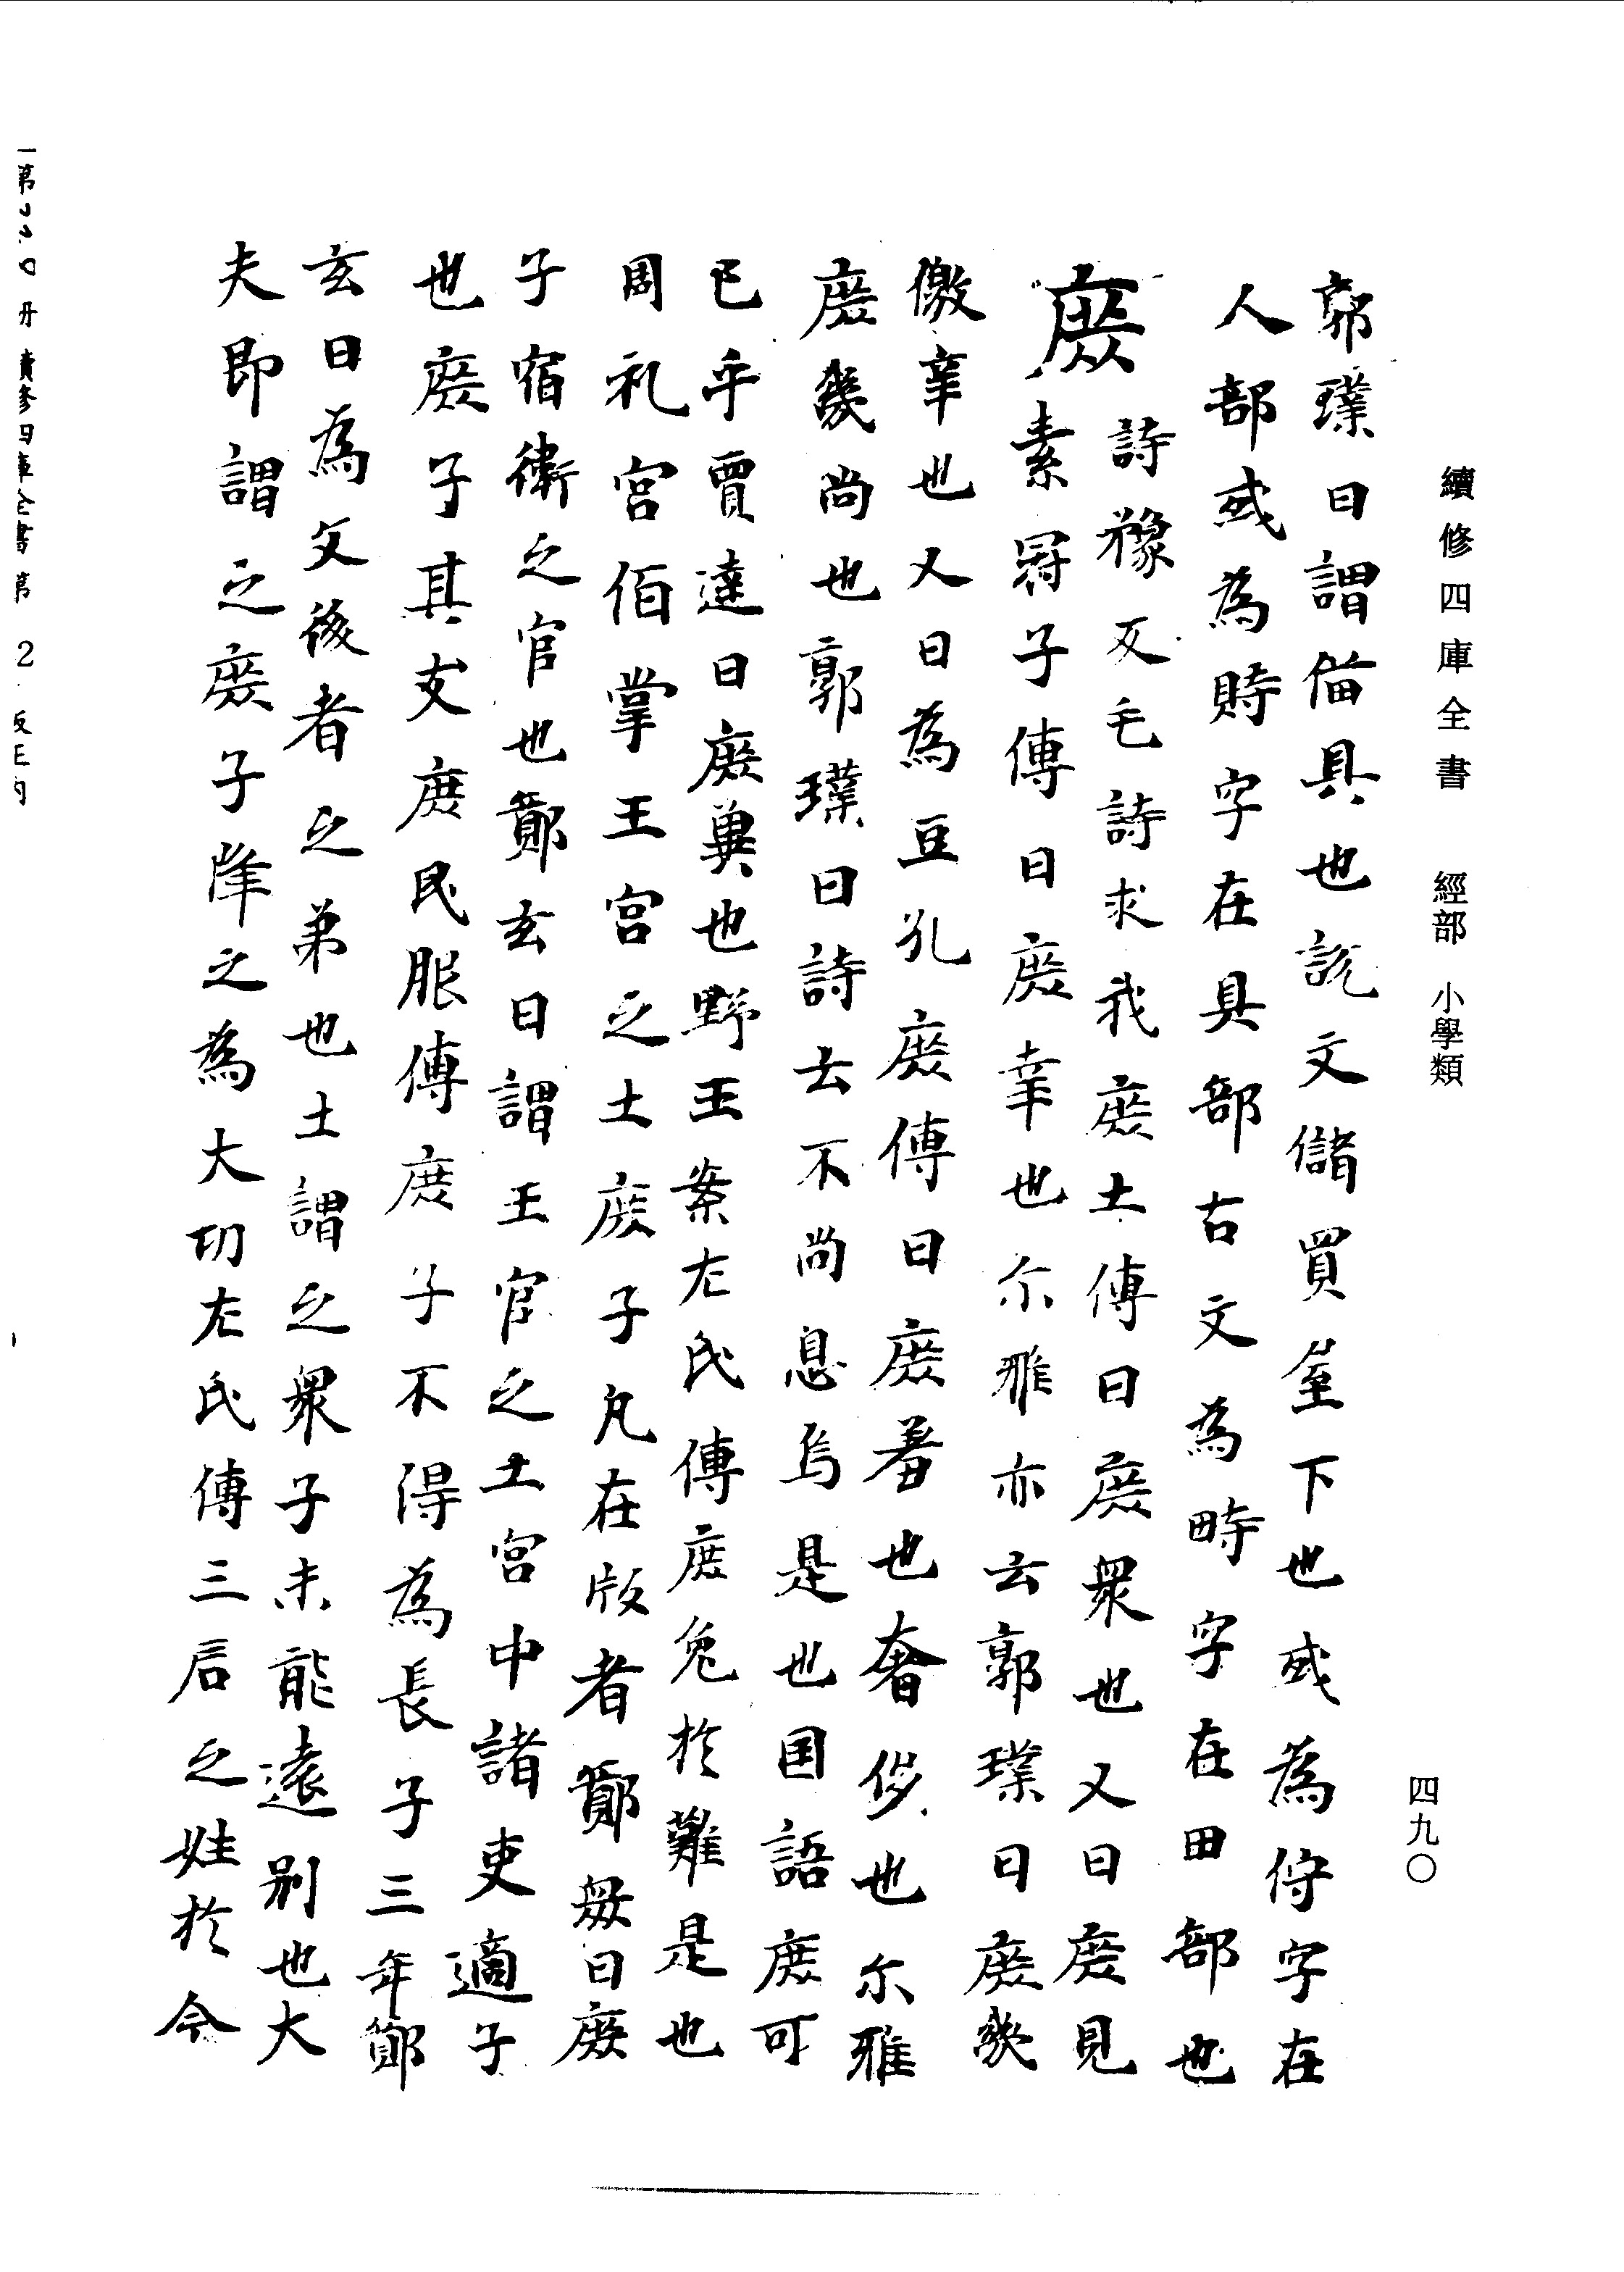 續修四庫全書　經部　小學類
四九〇
郭璞曰謂偹具也說文儲買屋下也或為侍字在
人部或為時字在具部古文為畤字在田部也
庶　詩豫反毛詩求我庶士傳曰庶衆也又曰庶見
素冠子傳曰庶幸也尒雅亦云郭璞曰庶幾
儌幸也又曰為豆孔庶傳曰庶著也奢侈也尒雅
庶幾尚也郭璞曰詩云不尚息焉是也国語庶可
已乎賈逵曰庶兾也野王案左氏傳庶免於難是也
周礼宫伯掌王宫之士庶子凡在版者鄭毎曰庶
子宿衛之官也鄭玄曰謂王官之士宫中諸吏適子
也庶子其支庶民服傳庶子不得為長子三年鄭
玄曰為父後者之弟也士謂之衆子未能遠别也大
夫即謂之庶子降之為大功左氏傳三后之姓於今